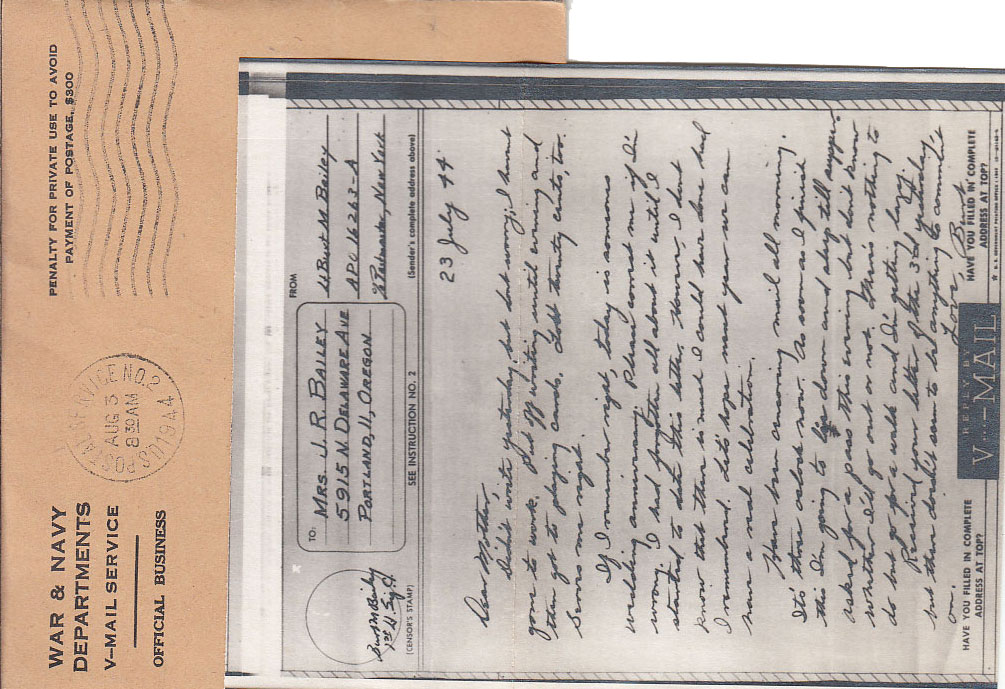 WAR & NAVY
DEPARTMENTS
V-MAIL SERVICE
OFFICIAL BUSINESS
U.S. POSTAL SERVICE NO. 2
AUG 3
8 30 AM
1944
PENALTY FOR PRIVATE USE TO AVOID
PAYMENT OF POSTAGE, $300
TO:
MRS. J. R. BAILEY
5915 N. DELAWARE AVE
PORTLAND, 11, OREGON
FROM
Lt Burt M Bailey
APO 16263-A
% Postmaster, New York
Burt M Bailey
1st Lt. Sig C.
(CENSOR'S STAMP)
SEE INSTRUCTION NO. 2
(Sender's complete address above)
23 July 44
Dear Mother,
Didn't write yesterday, but dont worry, I havent
gone to work. Put off writing until evening and
then got to playing cards. Lost twenty cents, too.
Serves me right.
If I remember right, today is someones
wedding anniversary. Please correct me if I'm
wrong. I had forgotten all about it until I
started to date this letter. However, I dont
know that there is much I could have done had
I remembered. Lets hope next year we can
have a real celebration.
Have been censoring mail all morning.
It's three oclock now. As soon as I finish
this I'm going to lie down and sleep till supper.
Asked for a pass this evening but don't know
whether I'll go out or not. There's nothing to
do but go for a walk and I'm getting lazy.
Received your letter of the 3rd yesterday
but there doesn't seem to be anything to comment
on.
Love, Burt
HAVE YOU FILLED IN COMPLETE
ADDRESS AT TOP?
REPLY BY
V···-MAIL
HAVE YOU FILLED IN COMPLETE
ADDRESS AT TOP?